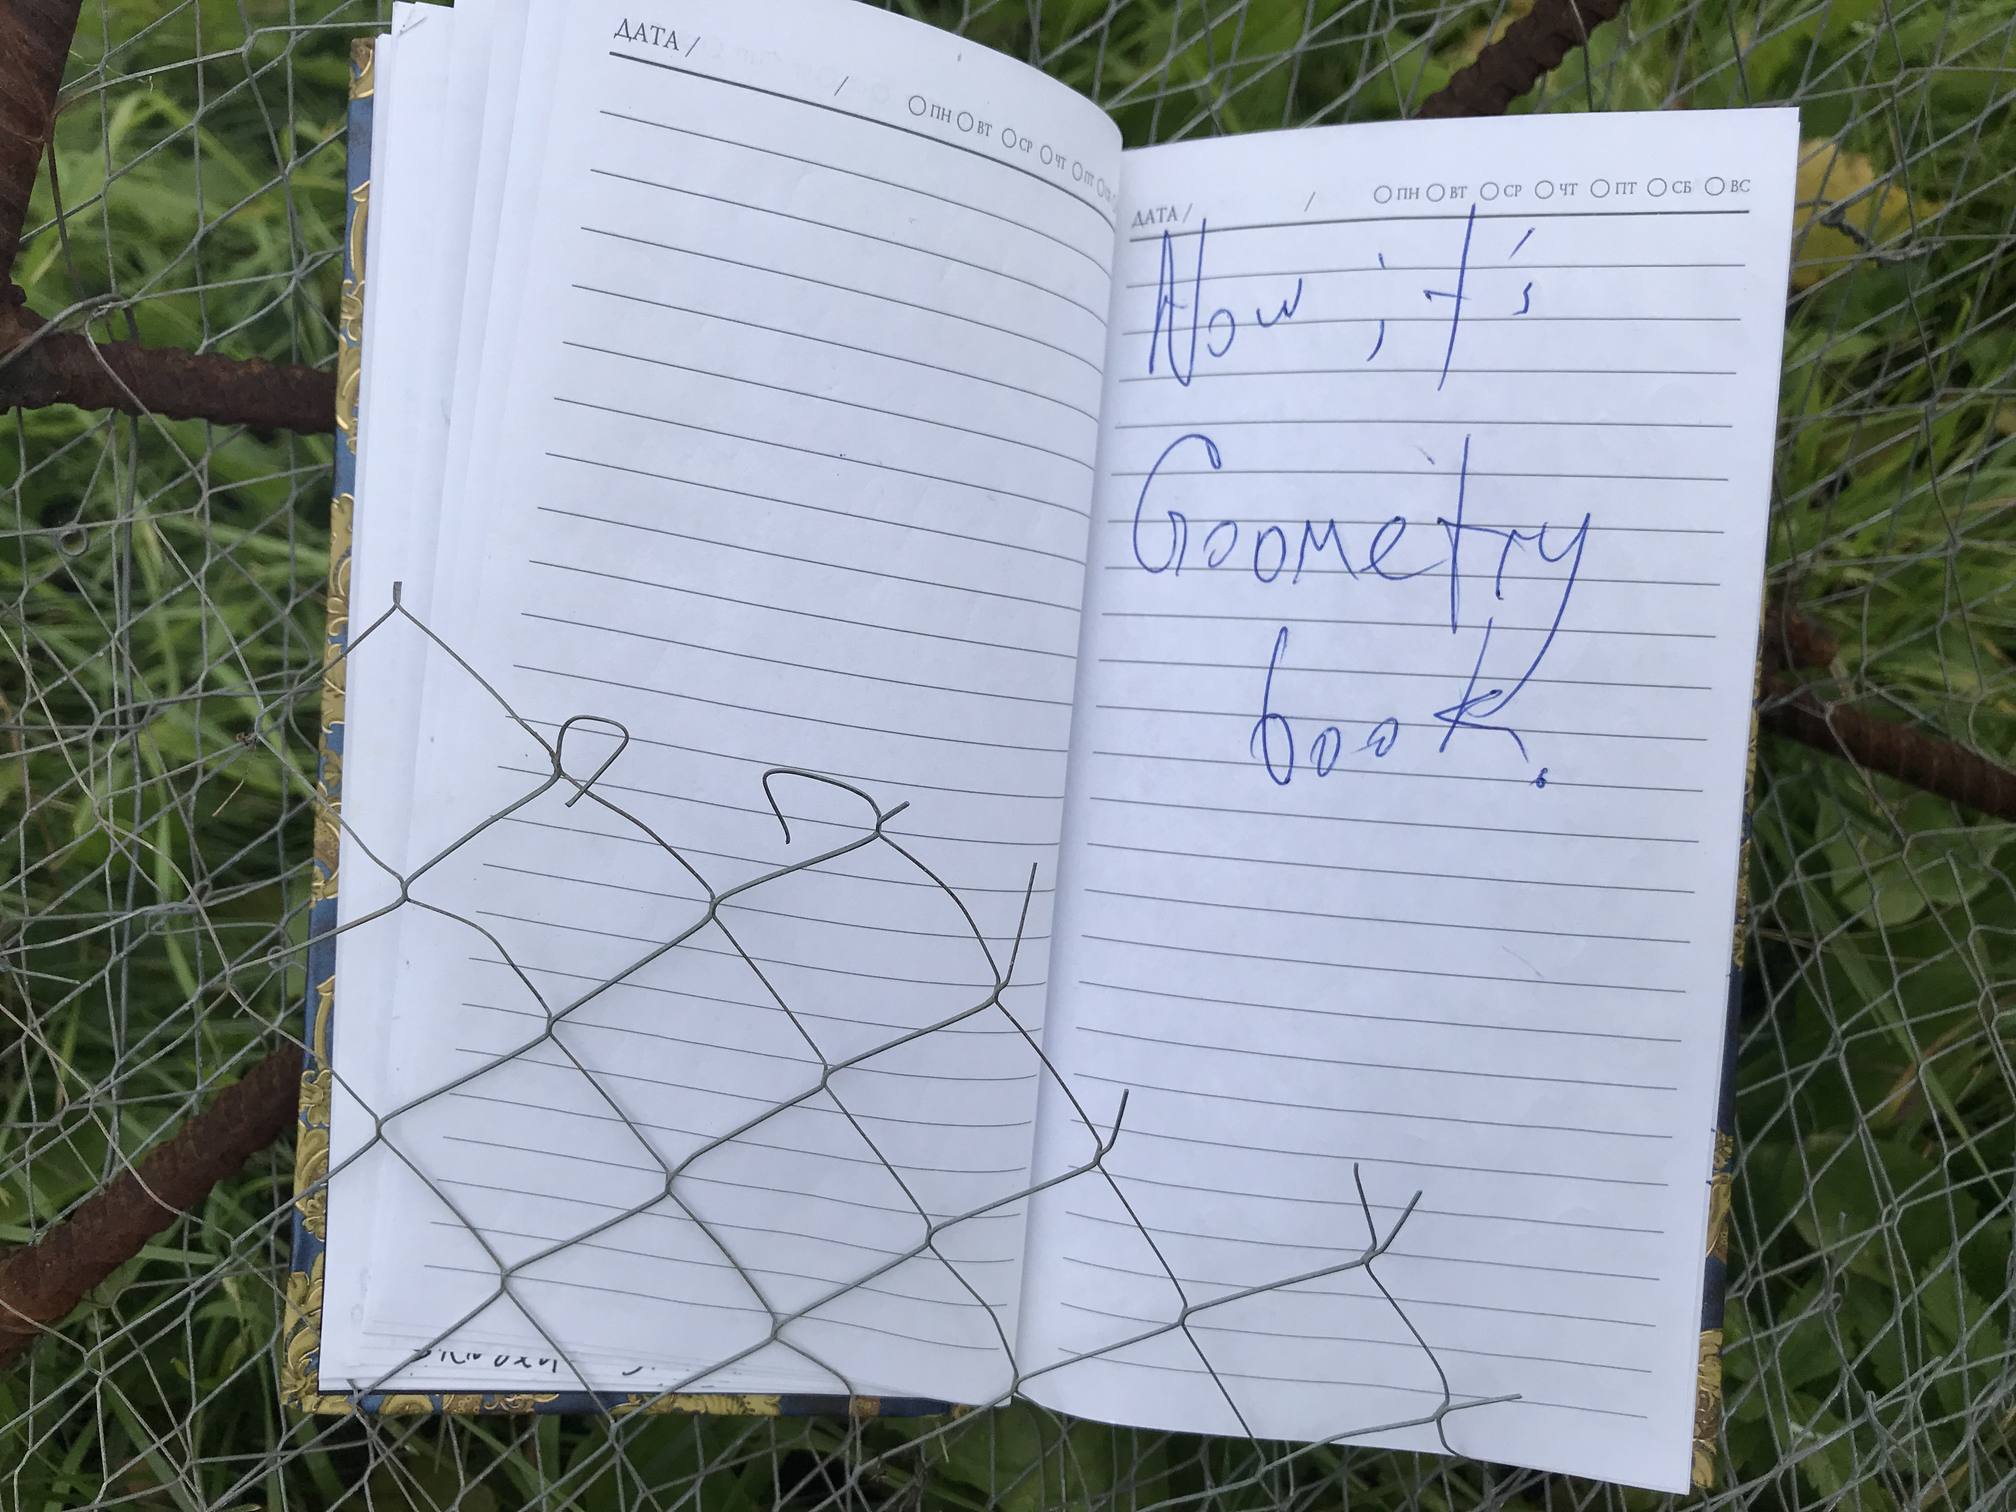 ДАТА / /
ПН ВТ СР ЧТ ПТ
ДАТА / /
ПН ВТ СР ЧТ ПТ СБ ВС
Now, it's
Goometry
book.